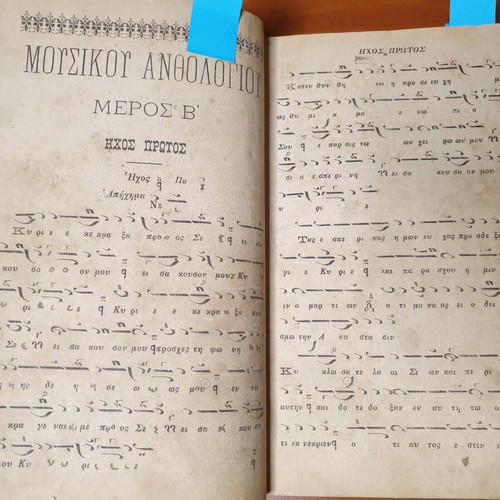 ΜΟΥΣΙΚΟΥ ΑΝΘΟΛΟΓΙΟΥ
ΜΕΡΟΣ Β'
ΗΧΟΣ ΠΡΩΤΟΣ
Ἦχος Πα
Ἀπήχημα Νε
Κυ ρι ε ε κε κρα ξα προ ο ος Σε ει
κου σο ο ον μου ει σα κου σον μου Κυ
Κυ ρι ε ε κε κρα ξα προ
ος Σε ει σα κου σον μου προσχες τη φω νη
της δε η σε ω ως μου εν τω
κρα γε ναι με προ ος Σε ει σα κου σον
μου Κυ ρι ε
ΗΧΟΣ ΠΡΩΤΟΣ
Κατευ θυν θη τω η προ σευ χη
ως θυ μι α μα ε νω πι ο
Σου ε παρ σις τω ων χει ρω ων μου
σι α ε σπε ρι νη ει σα κου σον μου
υ ρι ε
Τας ε σπε ρι νας η μων ευ χας προσδε ξαι
γι ε Κυ ρι ε και πα ρα σχου η μιν
ειν α μαρ τι ων ο τι μο νος ει ο δει
σμω την Α να στα σιν
Κυ κλω σα τε λα οι Σι ων και πε ρι
αυτην και δο τε δο ξαν εν αυ τη τω
τι εκ νεκρων ο τι αυ τος ε στιν